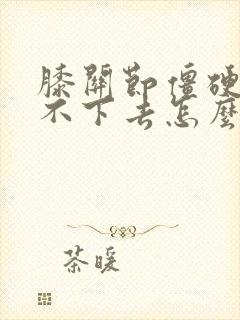 膝關節僵硬
不下去怎麼
茶暖